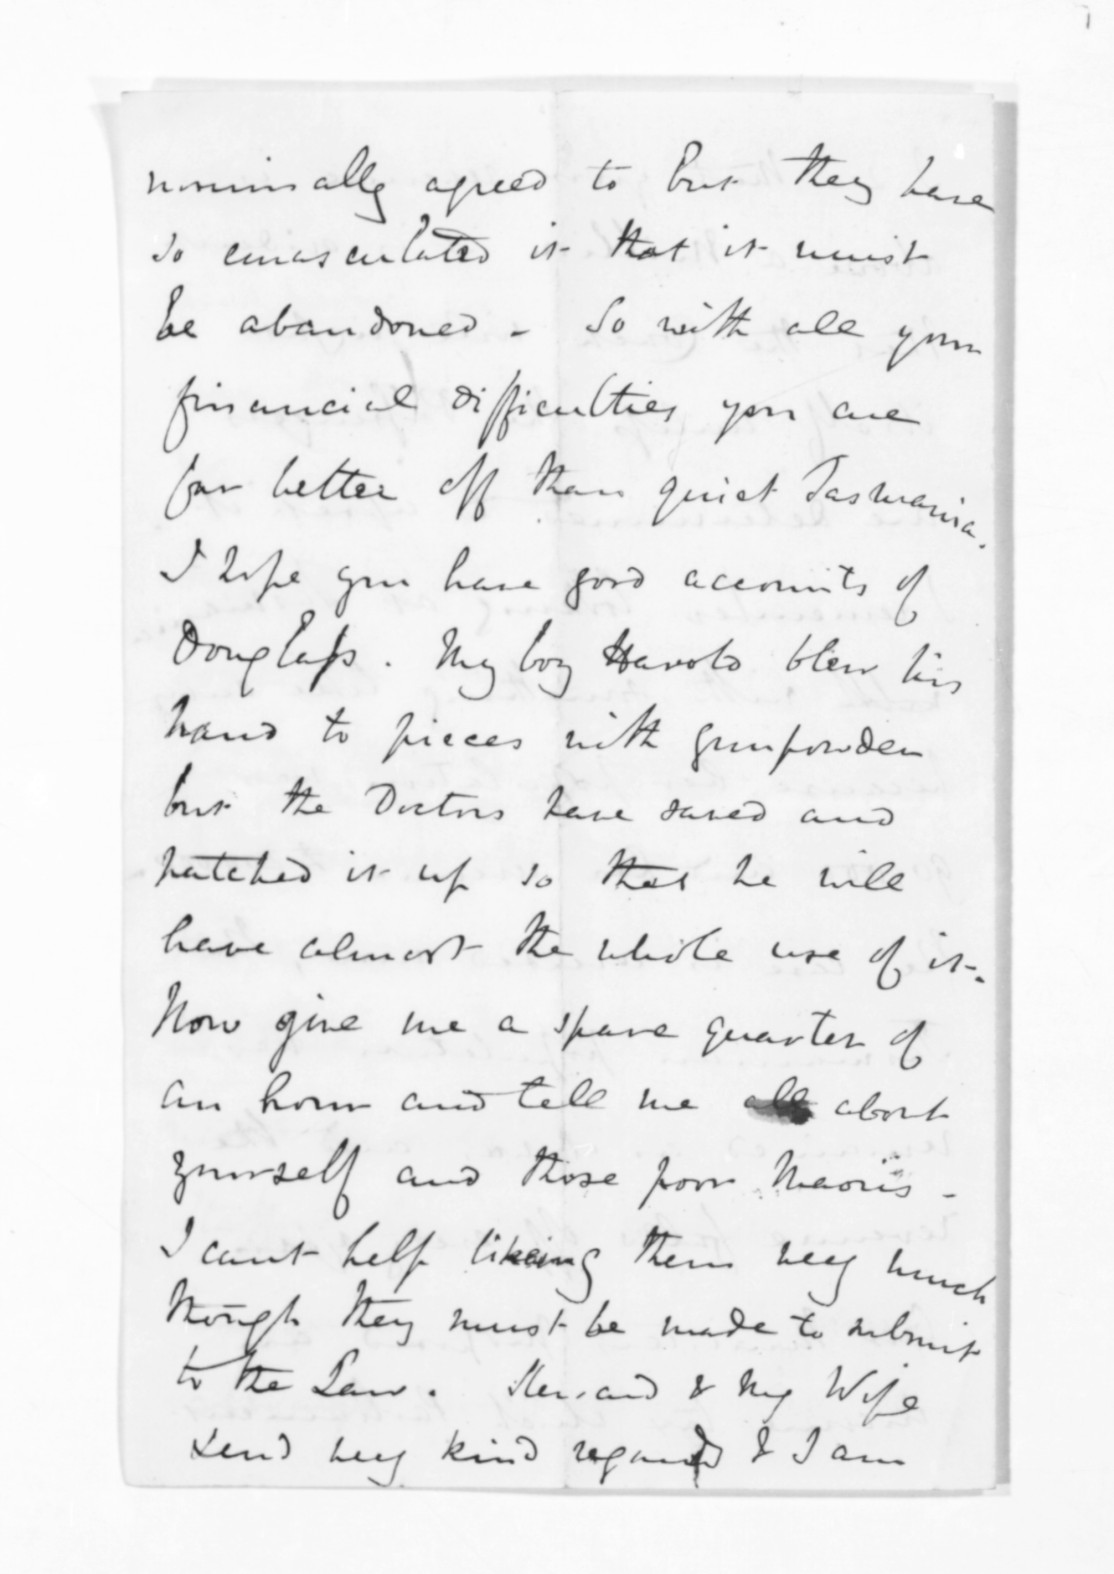 nominally agreed to but they have
so emasculated it that it must
be abandoned - So with all your
financial difficulties you are
far better off than quiet Tasmania.
I hope you have good accounts of
Douglass. My boy Harold blew his
hand to pieces with gunpowder
but the Doctors have saved and
patched it up so that he will
have almost the whole use of it.
Now give me a spare quarter of
an hour and tell me all about
yourself and those poor Maoris -
I cant help likeing them very much
though they must be made to submit
to the Law. & my Wife
send very kind regards & I am